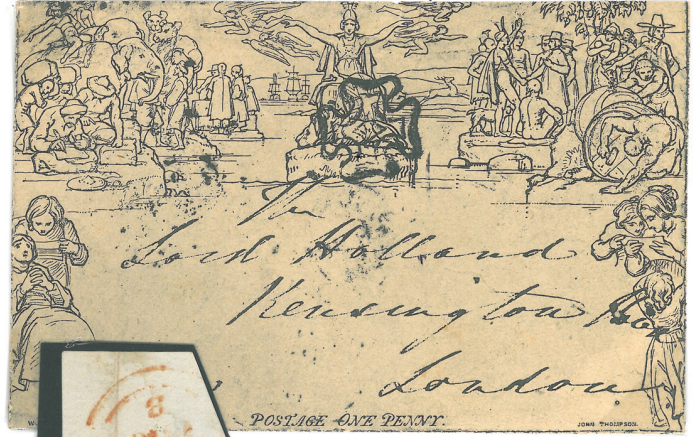 The
Lord Holland
Kensington
London
8
POSTAGE ONE PENNY.
W.
JOHN THOMPSON.